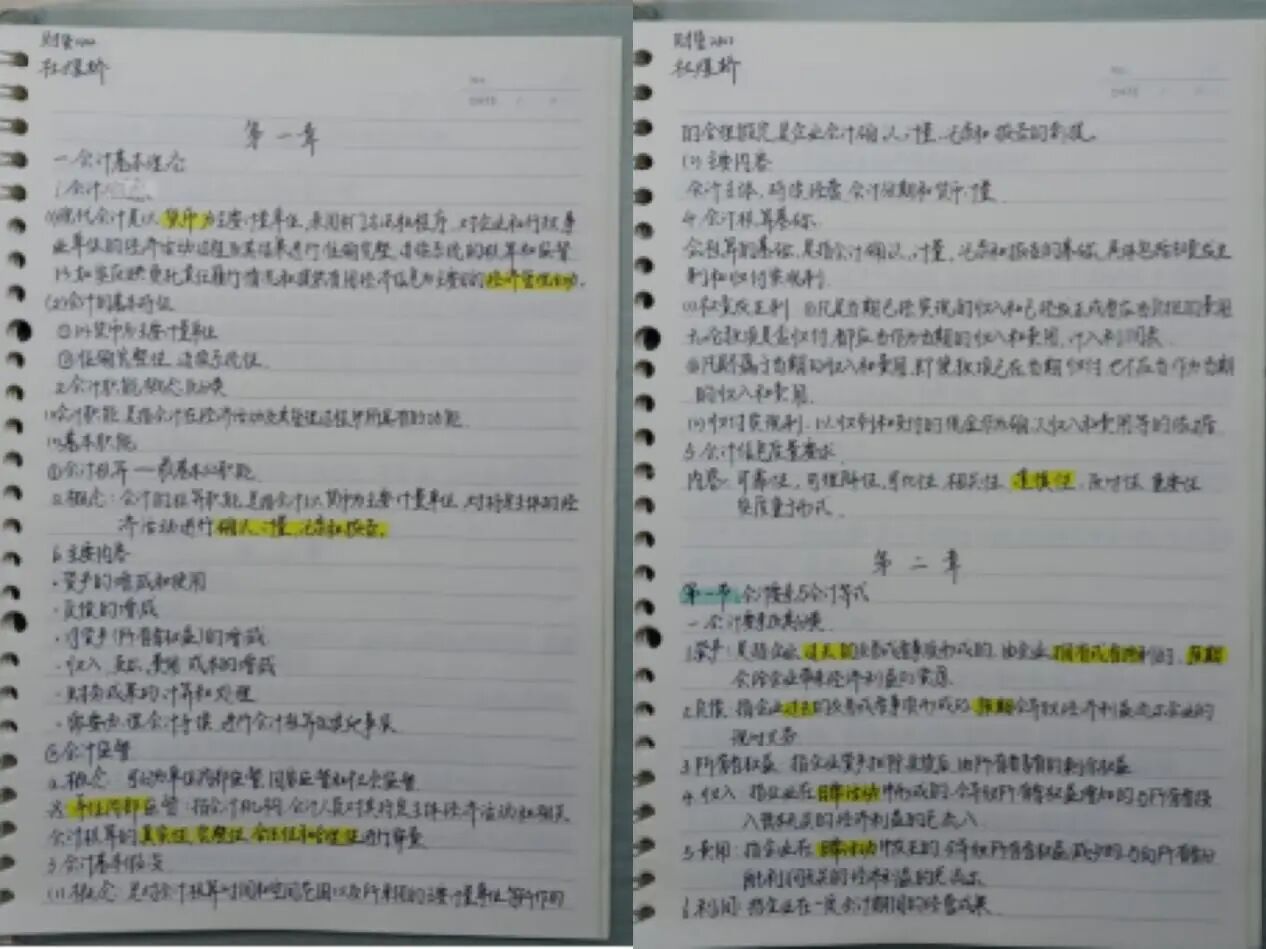 财管
No.
DATE
第一章
一、会计基本理念
1.会计
(1)现代会计是以货币为主要计量单位,采用专门方法和程序,对企业和行政事
业单位的经济活动过程及其结果进行准确完整、连续系统的核算和监督
以如实反映受托责任履行情况和提供有用经济信息为主要目的经济管理活动。
(2)会计的基本特征
①以货币为主要计量单位
②准确完整性、连续系统性
2.会计职能概念及分类
(1)会计职能是指会计在经济活动及其管理过程中所具有的功能
(2)基本职能
①会计核算——最基本的职能
a.概念:会计的核算职能,是指会计以货币为主要计量单位,对特定主体的经
济活动进行确认、计量、记录和报告。
b.主要内容
·资产的增减和使用
·负债的增减
·净资产(所有者权益)的增减
·收入、支出、费用、成本的增减
·财务成果的计算和处理
·需要办理会计手续、进行会计核算的其他事项
②会计监督
a.概念:可分为单位内部监督、国家监督和社会监督
单位内部监督:指会计机构、会计人员对其特定主体经济活动和相关
会计核算的真实性、完整性、合法性和合理性进行审查
3.会计基本假设
(1)概念:是对会计核算时间和空间范围以及所采用的主要计量单位等所作的
财管
No.
DATE
的合理假定,是企业会计确认、计量、记录和报告的前提。
(2)主要内容
会计主体、持续经营、会计分期和货币计量
4.会计核算基础
会计核算的基础,是指会计确认、计量、记录和报告的基础,具体包括权责发生
制和收付实现制
(1)权责发生制 ①凡是当期已经实现的收入和已经发生或者应当负担的费用
无论款项是否收付,都应当作为当期的收入和费用,计入利润表
②凡不属于当期的收入和费用,即使款项已在当期收付,也不应当作为当期
的收入和费用
(2)收付实现制:以收到和支付的现金作为确认收入和费用等的依据
5.会计信息质量要求
内容:可靠性、可理解性、可比性、相关性、谨慎性、及时性、重要性
实质重于形式
第二章
第一节 会计要素与会计等式
一、会计要素及其分类
1.资产:是指企业过去的交易或者事项形成的、由企业拥有或者控制的、预期
会给企业带来经济利益的资源
2.负债:指企业过去的交易或者事项形成的、预期会导致经济利益流出企业的
现时义务
3.所有者权益:指企业资产扣除负债后,由所有者享有的剩余权益
4.收入:指企业在日常活动中形成的、会导致所有者权益增加的、与所有者投
入资本无关的经济利益的总流入
5.费用:指企业在日常活动中发生的、会导致所有者权益减少的、与向所有者分
配利润无关的经济利益的总流出
6.利润:指企业在一定会计期间的经营成果